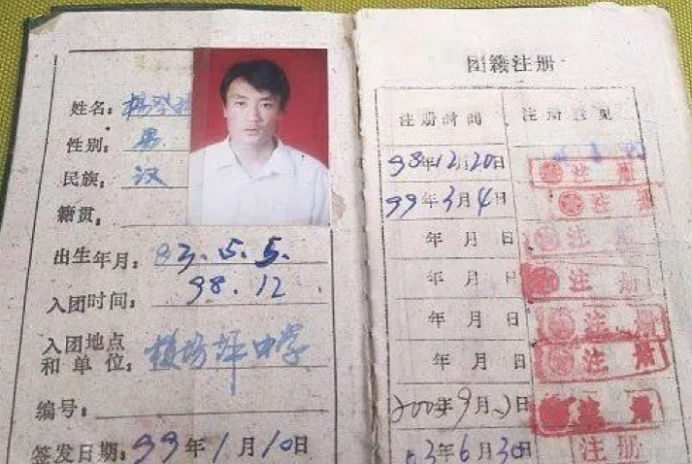 姓名：杨
性别：男
民族：汉
籍贯：
出生年月：83.5.5.
入团时间：98.12
入团地点
和单位：坪中学
编号：
签发日期：99年1月10日
团籍注册
注册时间 注册
98年12月20日 注册
99年3月4日 注册
年月日 注册
年月日 注册
年月日 注册
年月日 注册
年9月2日 注册
03年6月30日 注册